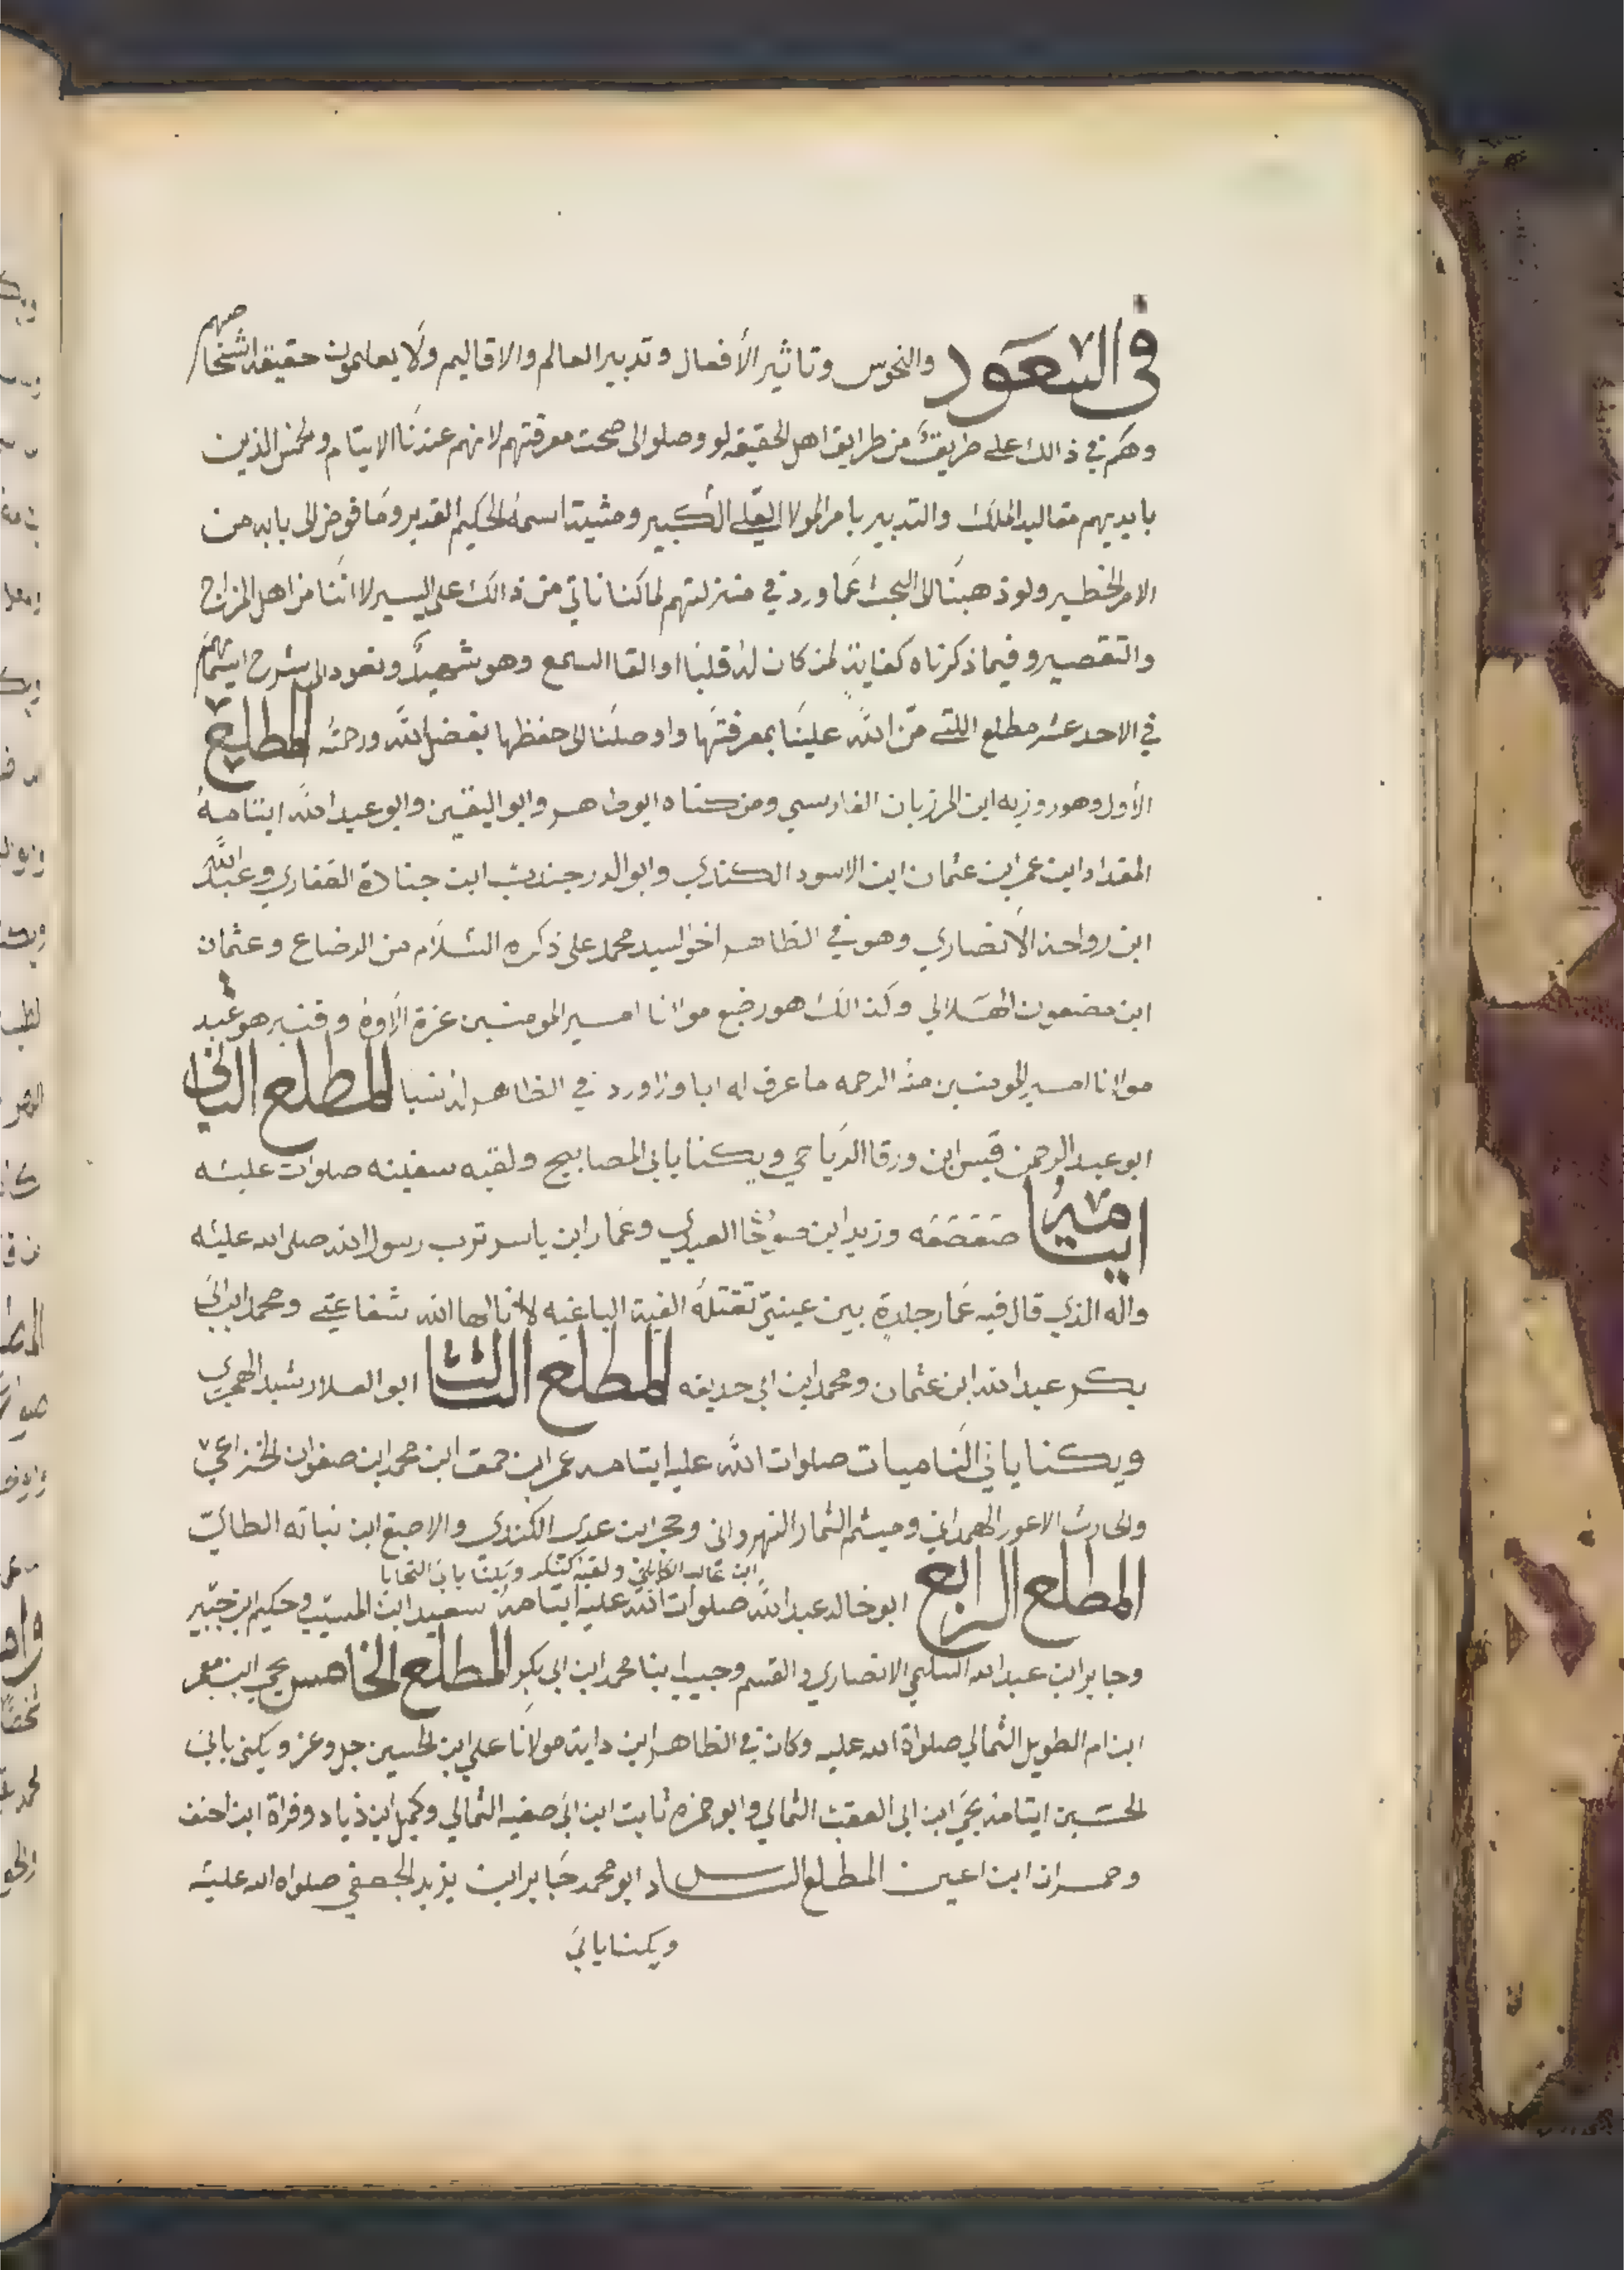 في السعود والنحوس وتاثير الأفعال وتدبير العالم والاقاليم ولا يعلمون حقيقة اشخاصهم
وهم في ذالك على طريقة من طرايق اهل الحقيقه لو وصلوا الى صحت معرفتهم لانهم عندنا الايتام والخمس الذين
بايديهم مقاليد الملك والتدبير بامر المولا العلي الكبير ومشية اسمه الحكيم القدير وما فوض الى بابه من
الامر الخطير ولو ذهبنا الى البحث عما ورد في منزلتهم لما كنا ناتي من ذالك على اليسير لاننا من اهل المزاج
والتقصير وفيما ذكرناه كفاية لمن كان له قلبا او القا السمع وهو شهيد ونعود الى شرح ايتامهم
في الاحد عشر مطلع اللتي من الله علينا بمعرفتها واوصلنا الى حفظها بفضل الله ورحمته المطلع
الأول وهو روزبه ابن المرزبان الفارسي ومن كناه ابو طاهر وابو اليقين وابو عبد الله ايتامه
المقداد ابن عمر ابن عثمان ابن الاسود الكندي وابو الدر جندب ابن جنادة الغفاري وعبد الله
ابن رواحة الأنصاري وهو في الظاهر اخو السيد محمد على ذكره السلام من الرضاع وعثمان
ابن مضعون الهلالي وكذالك هو رضيع مولانا امير المومنين عزة الاوه وقنبر هو عبد
مولانا امير المومنين منه الرحمه ما عرف له ابا وزاورد في الظاهر له نسبا المطلع الثاني
ابو عبد الرحمن قيس ابن ورقا الرياحي ويكنا بابي المصابيح ولقبه سفينه صلوات عليه
ايتامه صعصعه وزيد ابن صوحا العبدي وعمار ابن ياسر ترب رسول الله صلى الله عليه
واله الذي قال فيه عمار جلدة بين عينيّ تقتله الفية الباغيه لا انالها الله شفاعتي ومحمد ابن ابي
بكر عبد الله ابن عثمان ومحمد ابن ابي حديفه المطلع الثالث ابو العلا رشيد الهجري
ويكنا بابي الناميات صلوات الله عليه ايتامه عمر ابن حمق ابن محمد ابن صفوان الخزاعي
والحارث الاعور الهمداني وميثم الثمار النهرواني وحجر ابن عدي الكندي والاصبغ ابن نباته الطائي
ابن غالب الكابلي ولقبه كنكر ويكنا بابي التحايا
المطلع الرابع ابو خالد عبد الله صلوات الله عليه ايتامه سعيد ابن المسيب وحكيم ابن جبير
وجابر ابن عبد الله السلمي الانصاري والقسم وحبيب ابنا محمد ابن ابي بكر المطلع الخامس يحيى ابن معمر
ابن ام الطويل الثمالي صلواة الله عليه وكان في الظاهر ابن داية مولانا علي ابن الحسين جل وعز ويكنى بابي
الحسين ايتامه يحي ابن ابي العقب الثمالي وابو حمزه ثابت ابن ابي صفيه الثمالي وكميل ابن ذياد وفراة ابن احنف
وحمران ابن اعين المطلع السادس ابو محمد جابر ابن يزيد الجعفي صلواه الله عليه
ويكنا بابي